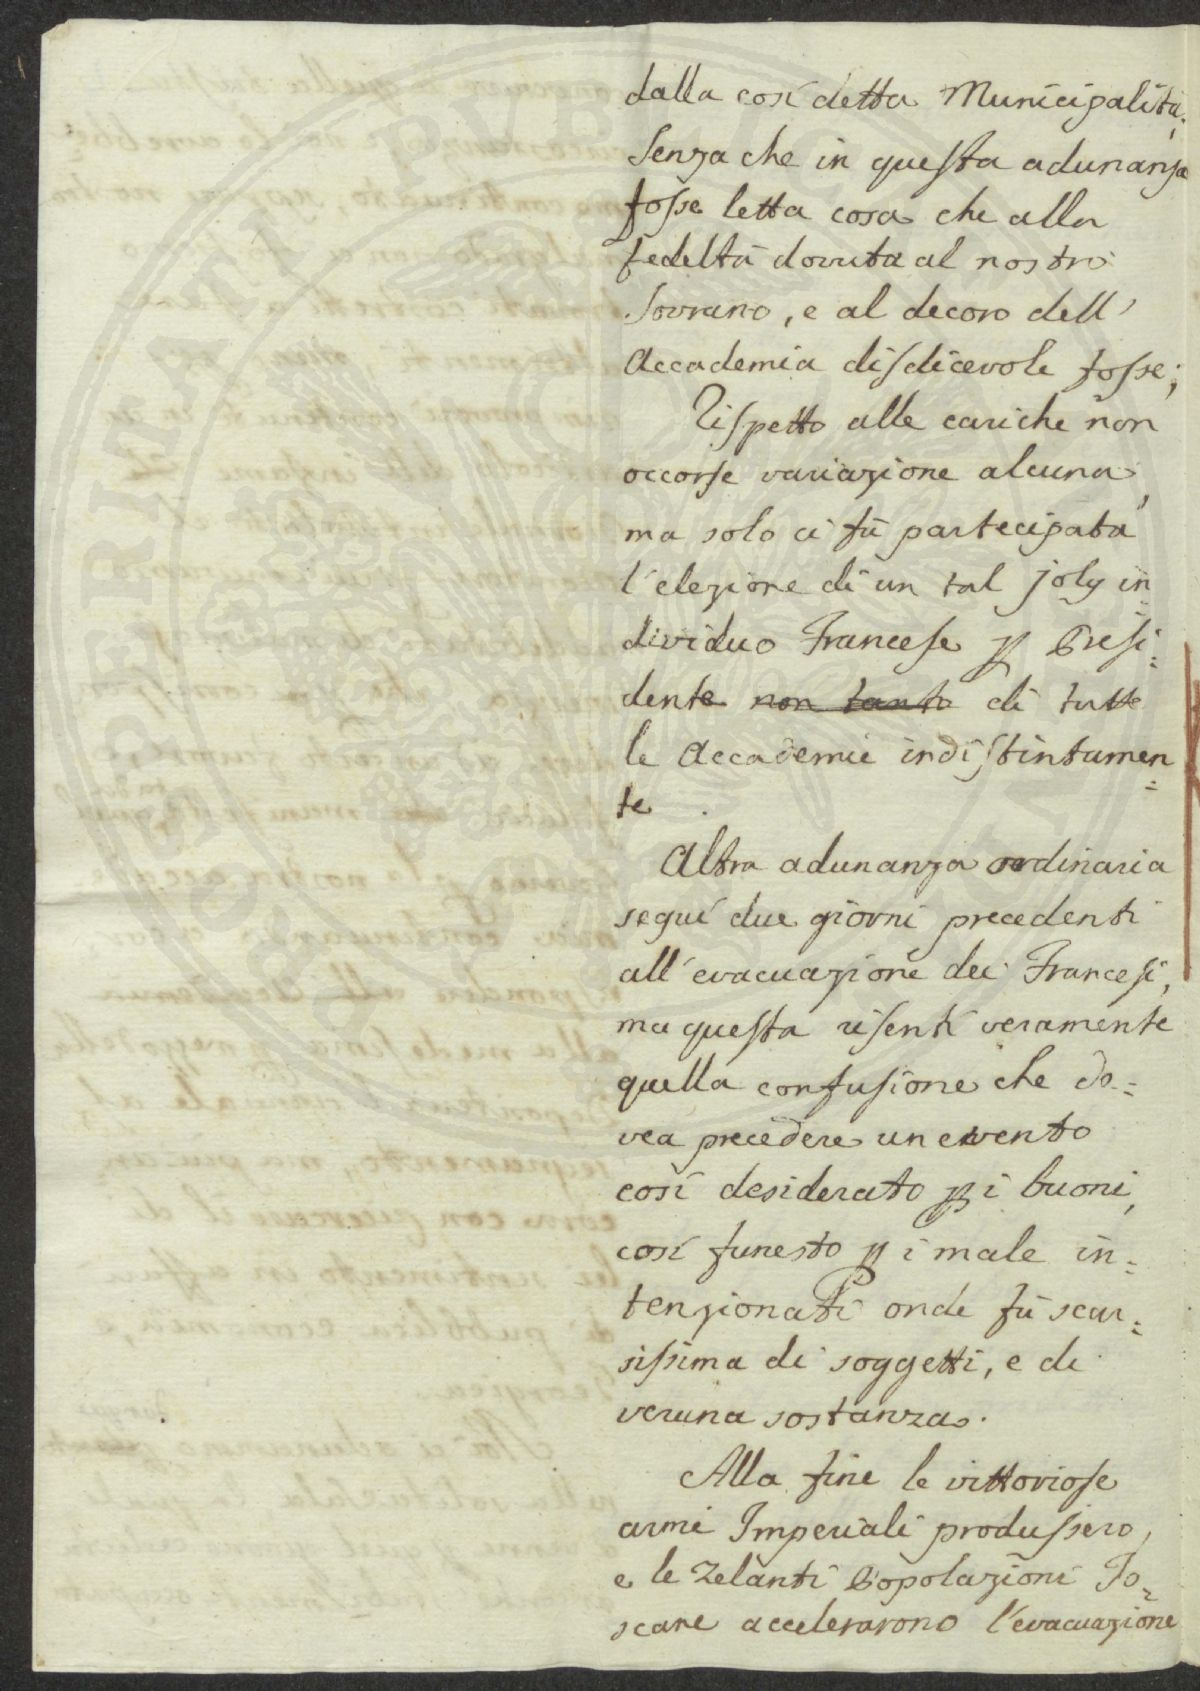 dalla così detta Municipalità,
Senza che in questa adunanza
fosse letta cosa che alla
fedeltà dovuta al nostro
Sovrano, e al decoro dell'
Accademia disdicevole fosse;
Rispetto alle cariche non
occorse variazione alcuna,
ma solo ci fù partecipata
l'elezione di un tal joly in=
dividuo Francese p Presi=
dente non tanto di tutte
le Accademie indistintamen=
te.
Altra adunanza ordinaria
seguì due giorni precedenti
all'evacuazione dei Francesi,
ma questa risentì veramente
quella confusione che do=
vea precedere un evento
così desiderato p i buoni,
così funesto p i male in=
tenzionati onde fù scar=
sissima di soggetti, e di
veruna sostanza.
Alla fine le vittoriose
armi Imperiali produssero,
e le zelanti Popolazioni To=
scane accelerarono l'evacuazione